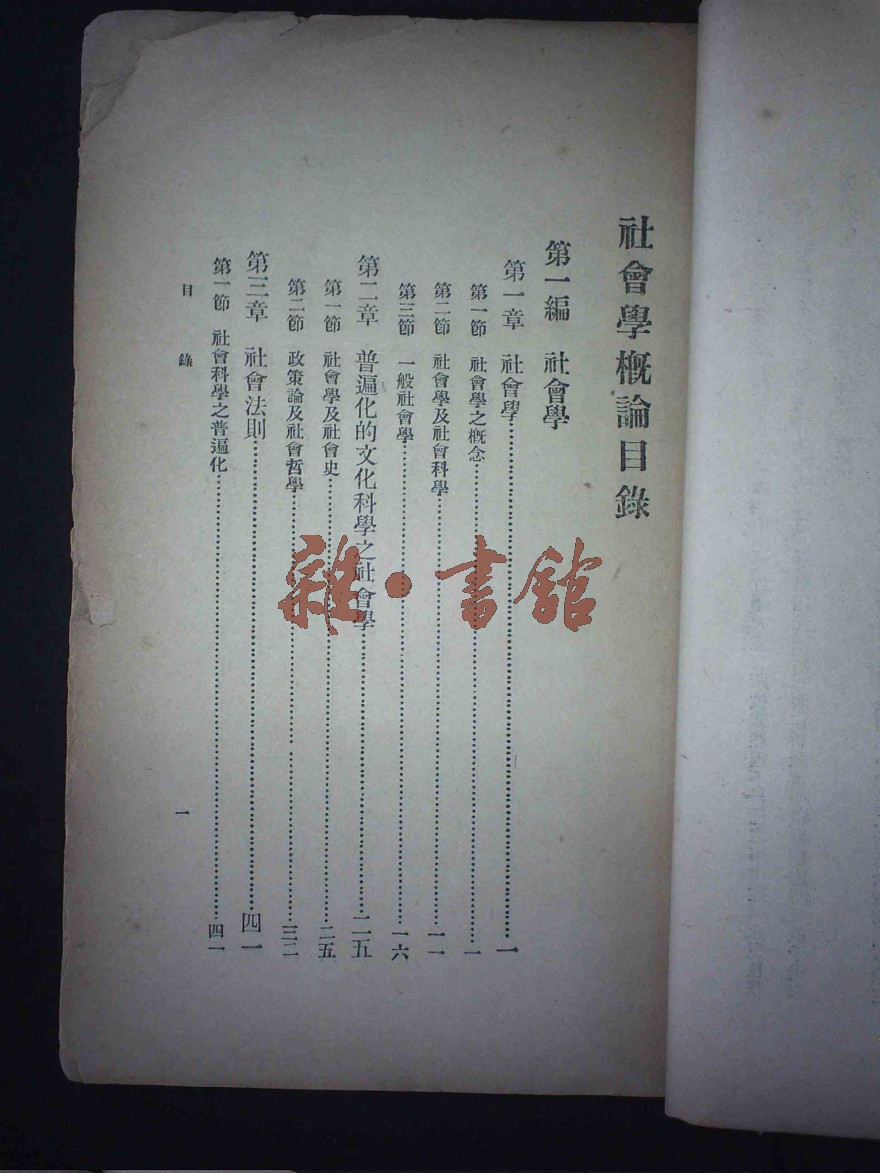 社會學概論目錄
第一編　社會學
第一章　社會學……一
第一節　社會學之概念……一
第二節　社會學及社會科學……一一
第三節　一般社會學……一六
第二章　普遍化的文化科學之社會學……二五
第一節　社會學及社會史……二五
第二節　政策論及社會哲學……三二
第三章　社會法則……四一
第一節　社會科學之普遍化……四一
目錄　一
雜·書館